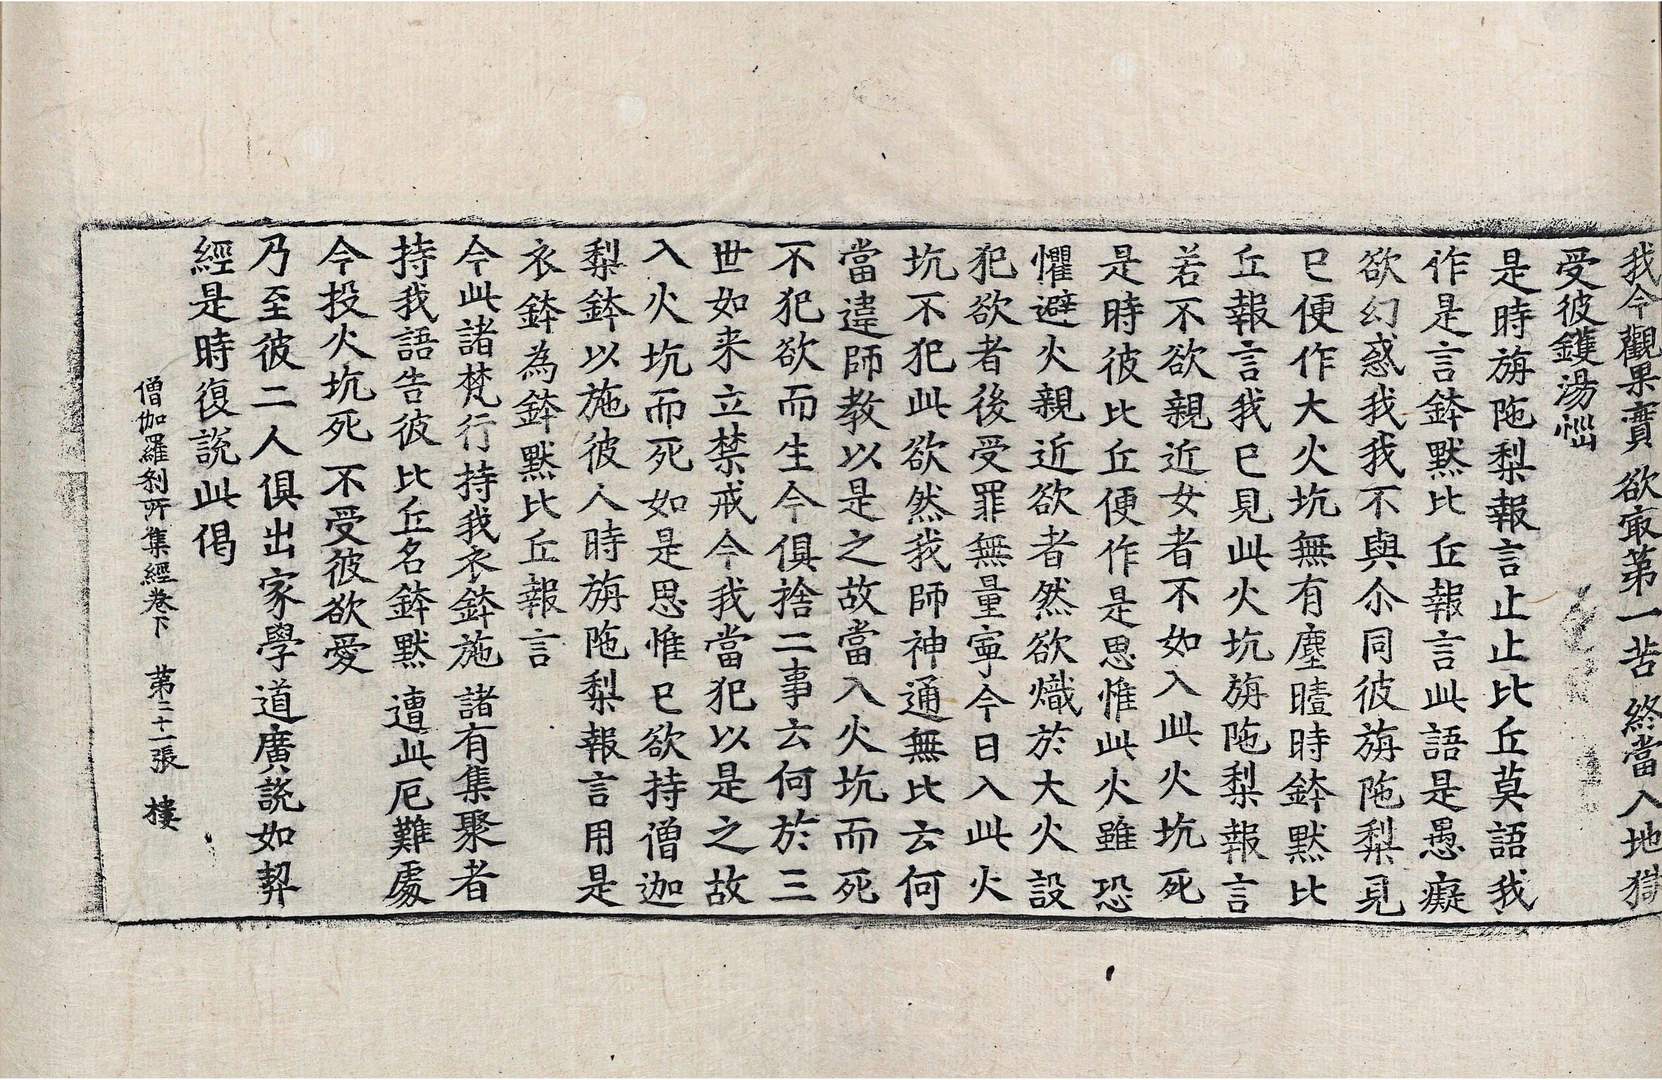 我今觀果實 欲㝡苐一苦 終當入地獄
受彼鑊湯惱
是時旃陁梨報言止止比丘莫語我
作是言鉢黙比丘報言此語是愚癡
欲幻惑我我不與尒同彼旃陁梨見
已便作大火坑無有塵曀時鉢黙比
丘報言我已見此火坑旃陁梨報言
若不欲親近女者不如入此火坑死
是時彼比丘便作是思惟此火雖恐
懼避火親近欲者然欲熾於大火設
犯欲者後受罪無量寧今日入此火
坑不犯此欲然我師神通無比云何
當違師教以是之故當入火坑而死
不犯欲而生今俱捨二事云何於三
世如来立禁戒今我當犯以是之故
入火坑而死如是思惟已欲持僧迦
梨鉢以施彼人時旃陁梨報言用是
衣鉢為鉢黙比丘報言
今此諸梵行持我衣鉢施 諸有集聚者
持我語告彼比丘名鉢黙 遭此厄難處
今投火坑死 不受彼欲愛
乃至彼二人俱出家學道廣說如契
經是時復說此偈
僧伽羅刹所集經卷下 苐二十一張 樓